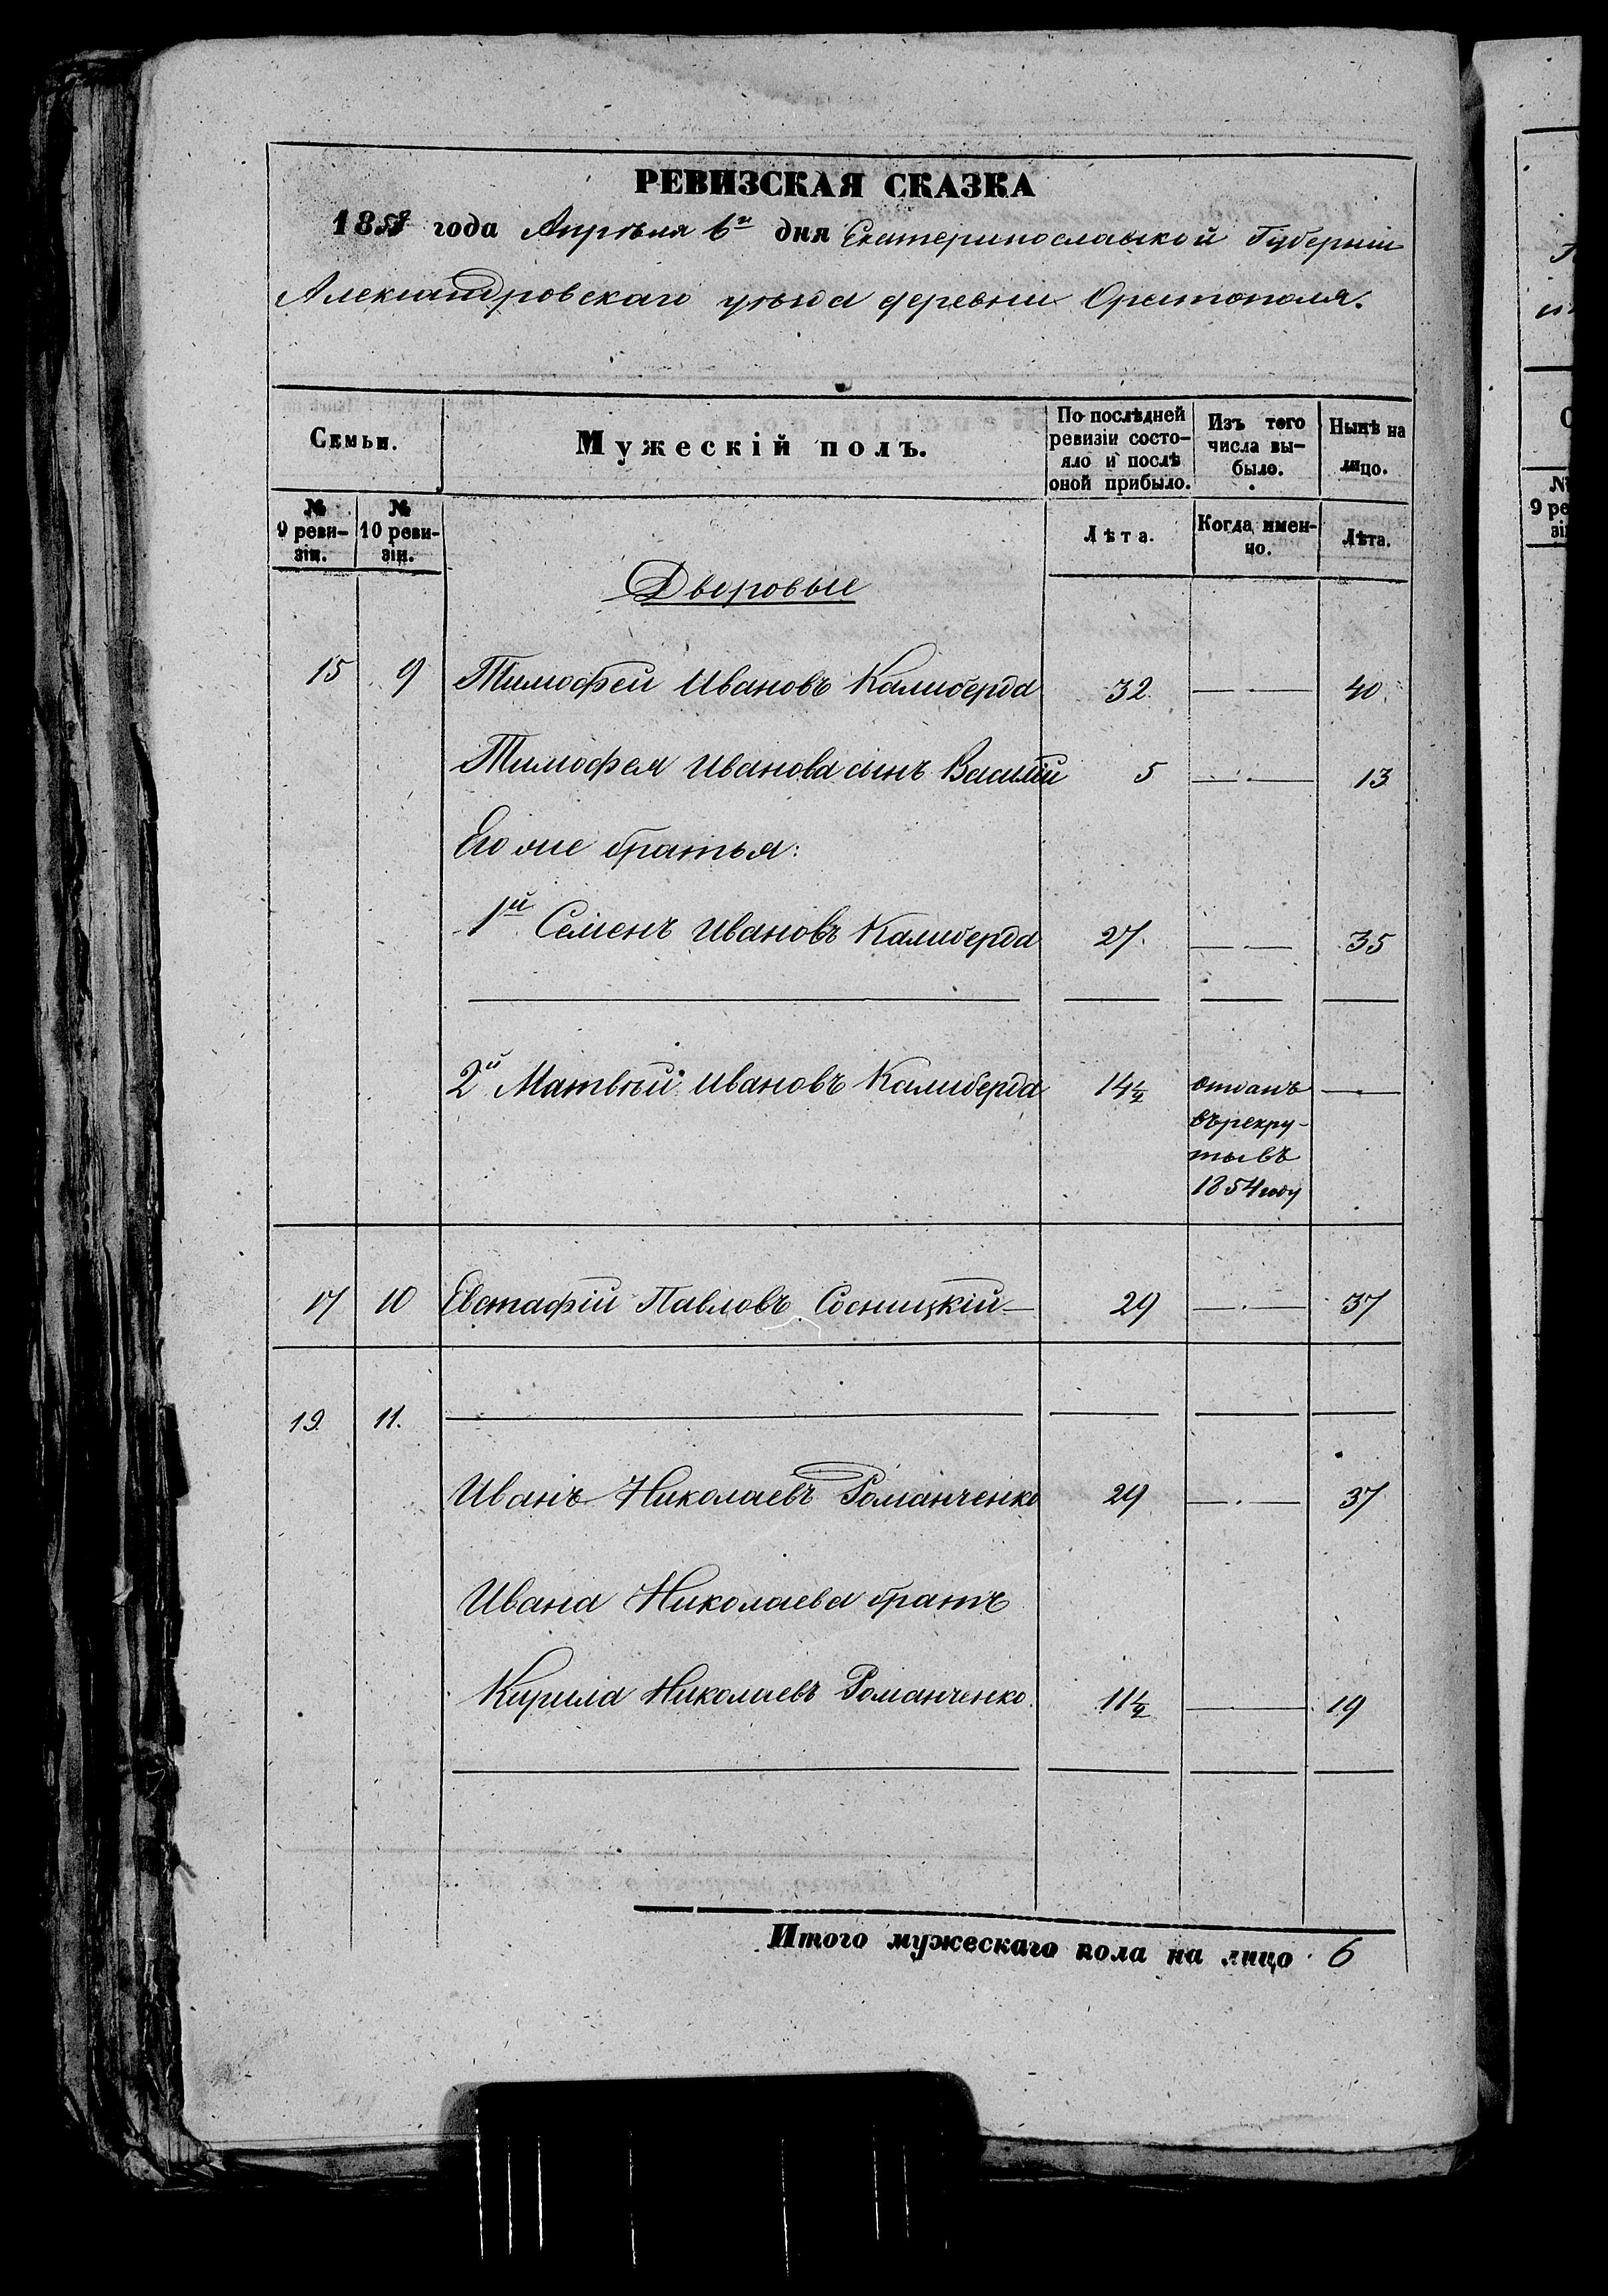 РЕВИЗСКАЯ СКАЗКА
1858 года Апрѣля 6го дня Екатеринославской Губерніи
Александровскаго уѣзда деревни Орестополя.
Семьи.
Мужескій полъ.
По послѣдней ревизіи состо-яло и послѣ оной прибыло.
Изъ того числа вы-было.
Нынѣ на лицо.
№ 9 реви-зіи.
№ 10 реви-зіи.
Лѣта.
Когда имен-но.
Лѣта.
Дворовые
15 9 Тимофей Ивановъ Калиберда 32. — · — 40
Тимофея Иванова сынъ Василій 5 — · — 13
Его же братья:
1й Семенъ Ивановъ Калиберда 27. — · — 35
2й Матвѣй Ивановъ Калиберда 14½ отданъ —
въ рекру-
ты въ
1854 году
17 10 Евстафій Павловъ Сосницкій 29 — · — 37
19 11.
Иванъ Николаевъ Романченко 29 — · — 37
Ивана Николаева братъ
Кирила Николаевъ Романченко. 11½ — 19
Итого мужескаго пола на лицо 6
9 ре